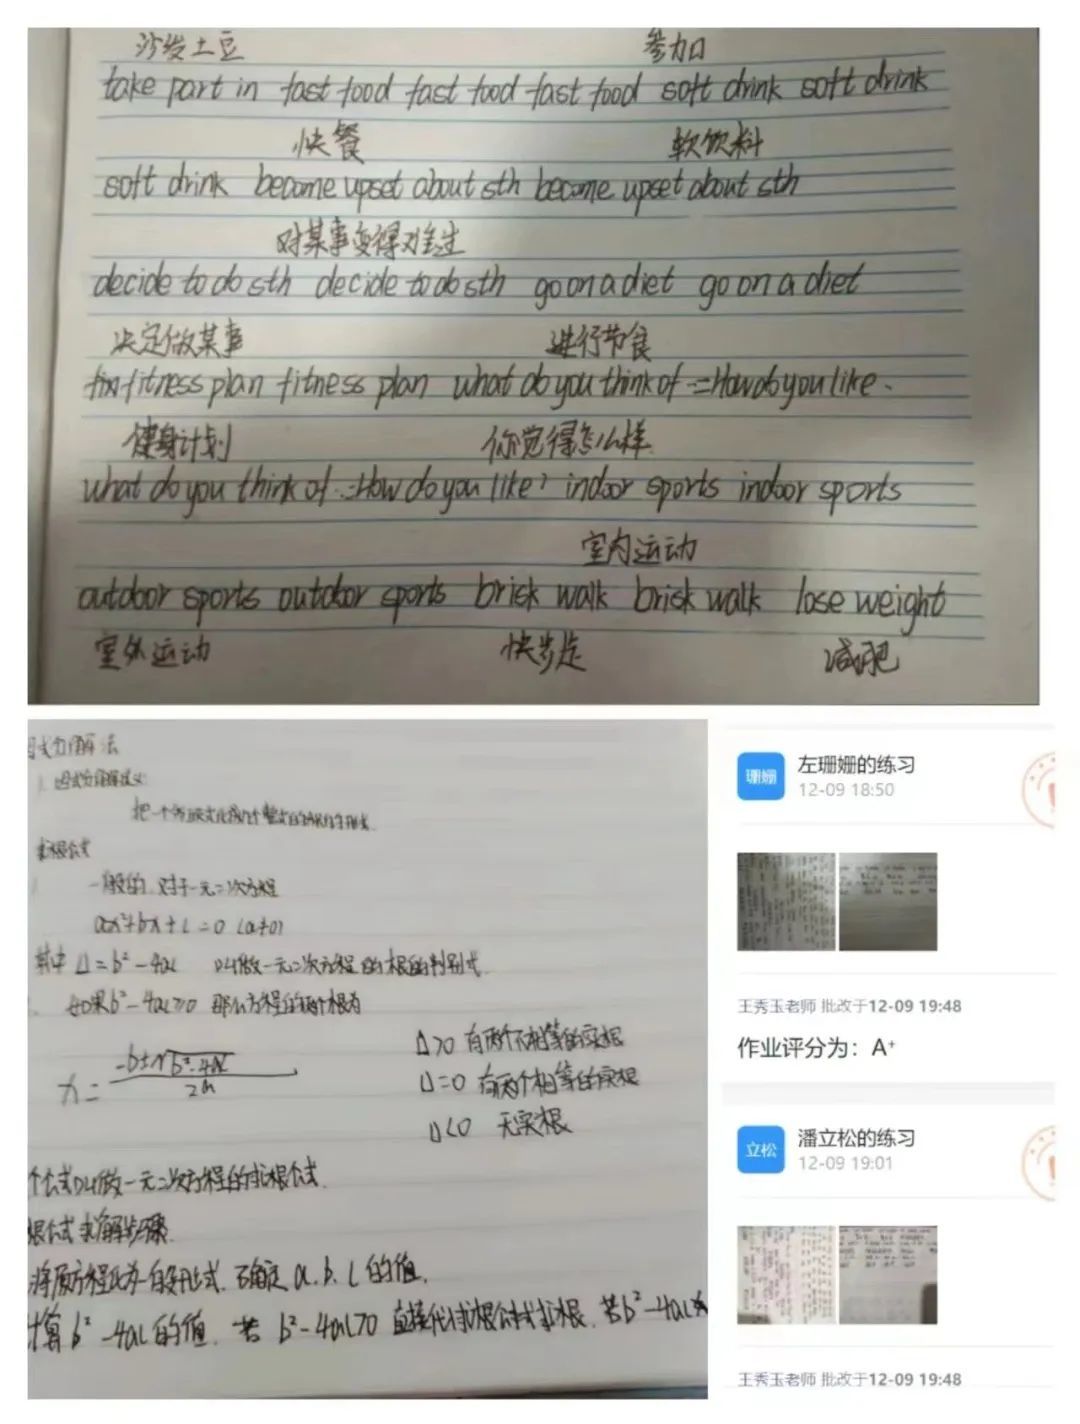 沙发土豆 参加
take part in fast food fast food fast food soft drink soft drink
快餐 软饮料
soft drink become upset about sth become upset about sth
对某事变得难过
decide to do sth decide to do sth go on a diet go on a diet
决定做某事 进行节食
fitness plan fitness plan what do you think of…=How do you like.
健身计划 你觉得怎么样
what do you think of…=How do you like? indoor sports indoor sports
室内运动
outdoor sports outdoor sports brisk walk brisk walk lose weight
室外运动 快步走 减肥
因式分解法
1. 因式分解定义
把一个多项式化成几个整式的形式
求根公式
一般的,对于一元二次方程
ax²+bx+c=0 (a≠0)
其中 Δ=b²-4ac 叫做一元二次方程的根的判别式.
如果b²-4ac≥0 那么方程的两个根为
x=-b±√b²-4ac/2a
Δ>0 有两个不相等的实根
Δ=0 有两个相等的实根
Δ<0 无实根
个公式叫做一元二次方程的求根公式.
根公式求解步骤
将原方程化为一般形式.确定a.b.c的值.
计算b²-4ac的值.若b²-4ac>0 直接代入求根公式求根.若b²-4ac
珊姗
左珊姗的练习
12-09 18:50
王秀玉老师 批改于12-09 19:48
作业评分为：A⁺
立松
潘立松的练习
12-09 19:01
王秀玉老师 批改于12-09 19:48